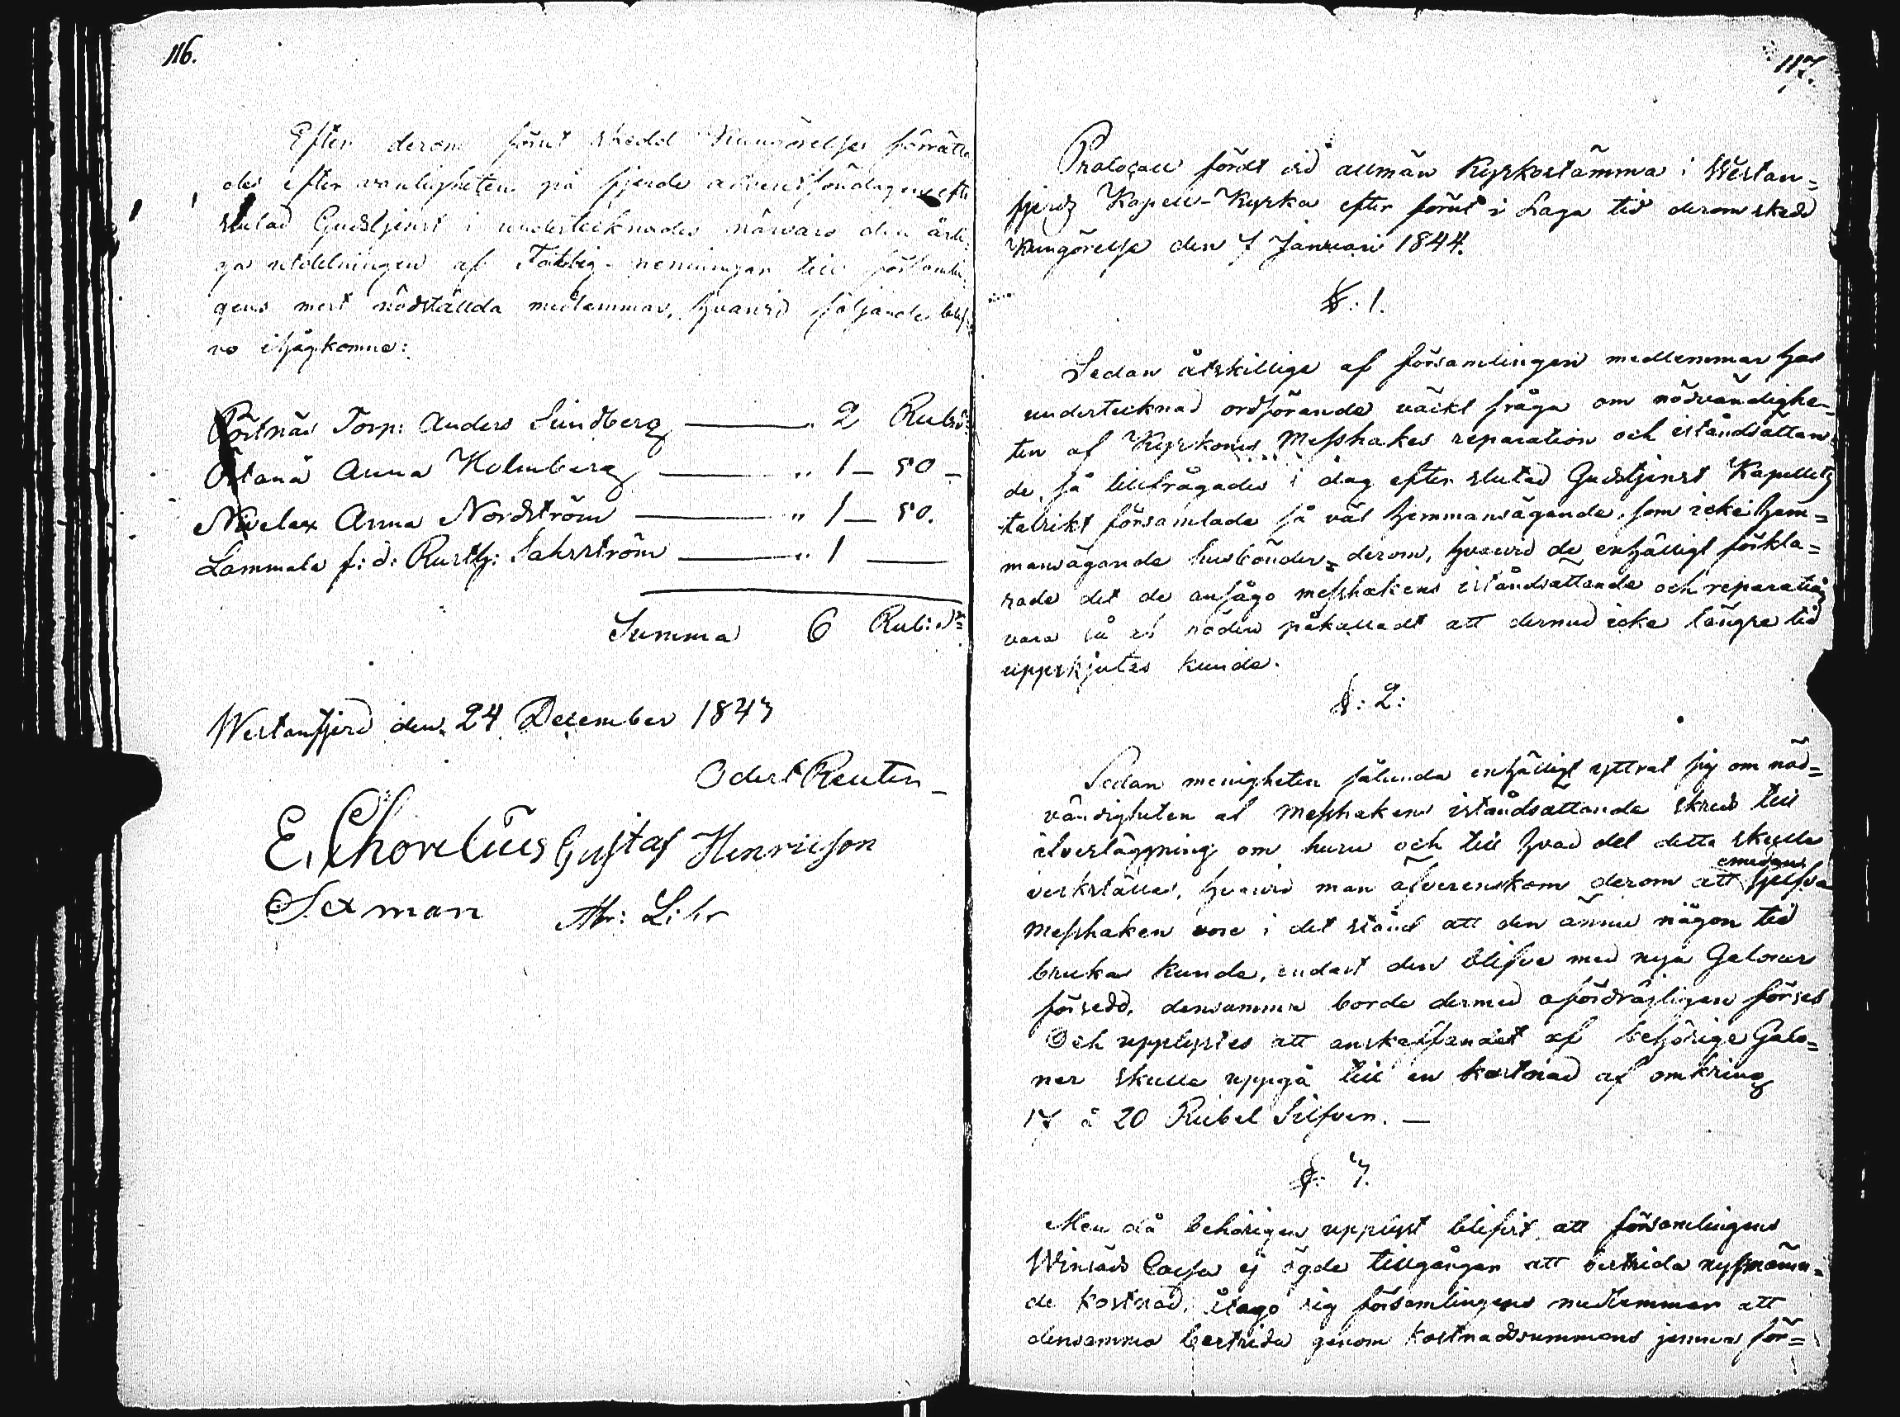 116.
Efter derom förut skedd Kungörelse förrätta
des efter vanligheten på fjerde adventssöndagen efte
slutad Gudstjenst i undertecknades närvaro den årli
ga utdelningen af Fattig-penningar till församlin
gens mest nödställda medlemmar, hvarvid följande blef
vo ihågkomne:
Törp: Anders Sundberg — „ 2 Rub:
Östanå Anna Holmberg — „ 1 — 50 —
Nivelax Anna Nordström — „ 1 — 50.
Lammala f: d: Rusth: — „ 1 —
Summa 6 Rub: Sr
Westanfjerd den 24 December 1843
Odert Reuter
E. Thorelius Gustaf Henricsson
Abr:
117.
Protocoll fördt vid allmän Kyrkostämma i Westan=
fjerds Kapell-Kyrka efter förut i Laga tid derom skedd
Kungörelse den 7 Januari 1844.
§: 1.
Sedan åtskillige af församlingens medlemmar hos
undertecknad ordförande väckt fråga om nödvändighe=
ten af Kyrkones Messhakes reparation och iståndsättan=
de, så tillfrågades i dag efter slutad Gudstjenst Kapellets
talrikt församlade så väl hemmansägande, som icke hem=
mansägande husbönder derom, hvarvid de enhälligt förkla=
rade det de ansågo messhakens iståndsättande och reparation
vara så af nöden påkalladt att dermed icke längre tid
uppskjutas kunde.
§: 2:
Sedan menigheten sålunda enhälligt yttrat sig om nöd=
vändigheten af Messhakens iståndsättande skreds till
öfverläggning om huru och till hvad del detta skulle
verkställas, hvarvid man öfverenskom derom att emedan sjelfva
Messhaken vore i det stånd att den ännu någon tid
brukas kunde, endast den blifve med nya Galoner
försedd, densamma borde dermed ofördröjligen förses
Och upplystes att anskaffandet af behörige Galo=
ner skulle uppgå till en kostnad af omkring
17 à 20 Rubel Silfver. —
§: 3.
Men då behörigen upplyst blifvit att församlingens
Cassa ej ägde tillgångar att bestrida nyssnämn=
de kostnad, åtago sig församlingens medlemmar att
densamma bestrida genom kostnadssummans jemna för=